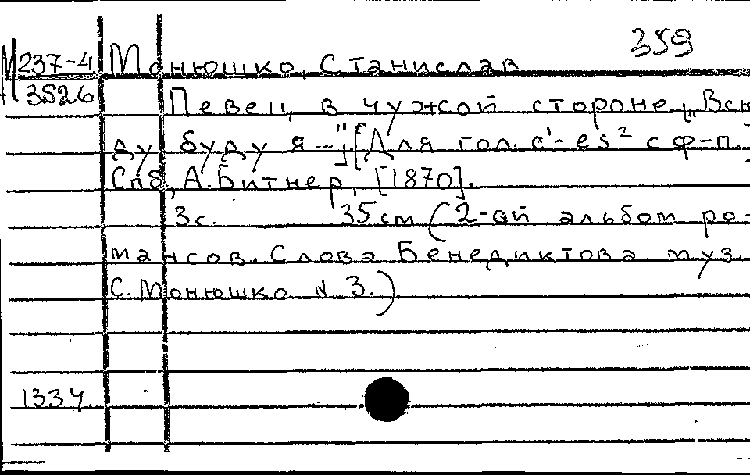 359
М 237-4 Монюшко, Станислав
3526 Певец в чужой стороне. "Всю-
ду буду я..." [Для гол. c¹-es² с ф-п.
Спб, А. Битнер, [1870].
3с. 35см (2-ой альбом ро-
мансов. Слова Бенедиктова муз.
С. Монюшко N 3.)
1334